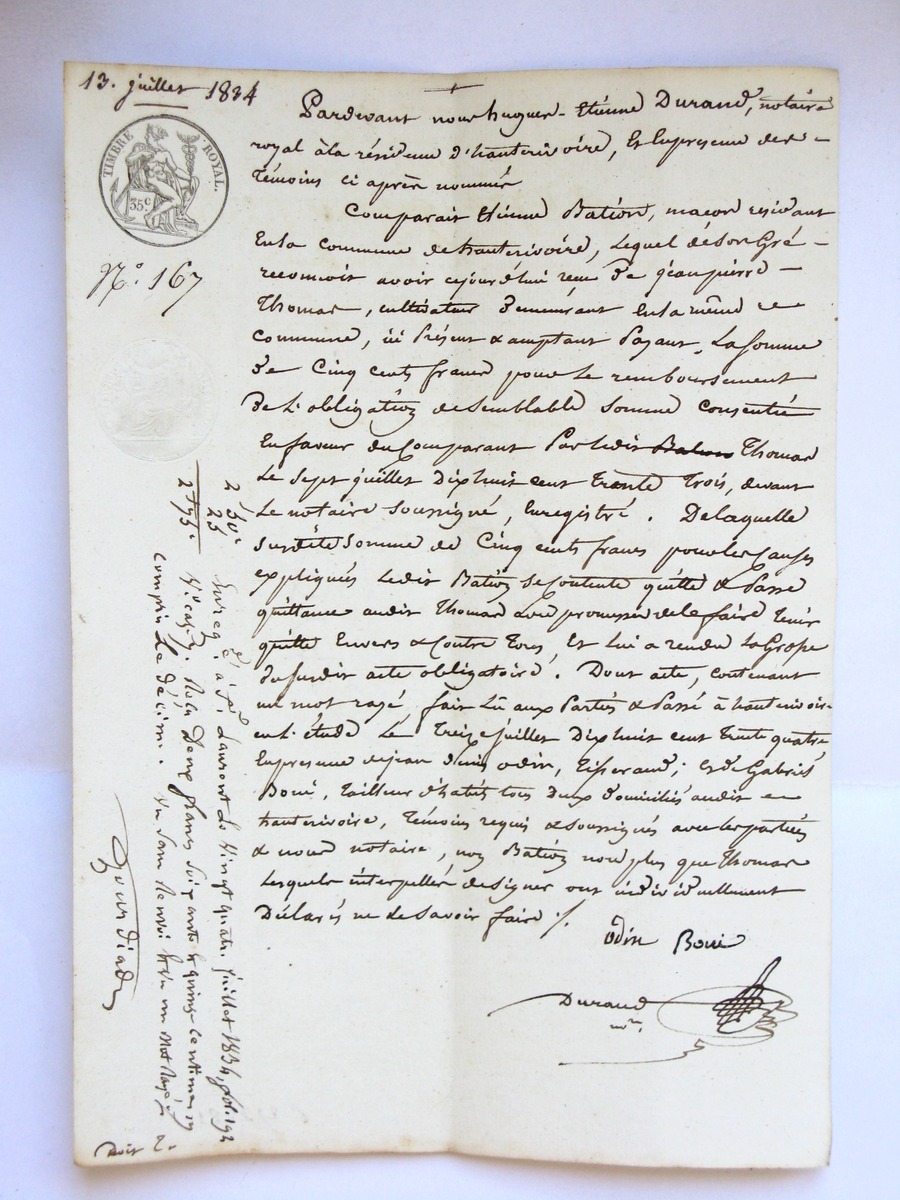 13. juillet 1834
TIMBRE ROYAL.
35 c
N.° 167
Pardevant nous hugues-Etienne Durand, notaire
royal à la résidence d'hauterivoire, Et En presence des
témoins ci après nommés
Comparait Etienne Bation, maçon résidant
En la commune de hauterivoire, Lequel de Son Gré
reconnoit avoir cejourd'hui recu de jean pierre
Thomas, cultivateur demeurant En la même
commune, ici Présent & acceptant Payant, La Somme
de Cinq cents francs pour Le remboursement
De L'obligation de Semblable Somme Consentie
En faveur du Comparant Par Ledit Thomas
Le Sept juillet Dix huit cent Trente Trois, devant
Le notaire Soussigné, Enregistré. De laquelle
Susdite Somme de Cinq cents francs pour les Causes
expliquées Ledit Bation Se Contente quitte & Passe
quittance audit Thomas avec promesse de le faire Tenir
quitte Envers & Contre Tous, Et Lui a rendu La Grosse
du Susdit acte obligatoire. Dont acte, contenant
un mot rayé, fait Lû aux Parties & Passé à hauterivoire
en L'étude Le Treize juillet Dix huit cent Trente quatre
En presence de jean Denis odin, Tisserand; Et de Gabriel
Boué, Tailleur d'habits tous Deux Domiciliés audit
hauterivoire, Témoins requis & Soussignés avec
& nous notaire, non Bation non plus que Thomas
Lesquels interpellés de Signer ont individuellement
Déclarés ne Le Savoir faire ./.
Odin Boué
Durand
nre
2 50 c
25
2 75 c
Enreg. é à St Laurent Le vingt quatre juillet 1834, fol. 192
V° cas. Reçu Deux francs Soixante quinze centimes
compris Le décime. Vu Sans Renvoi & Vu un Mot Rayé
Doit 2.